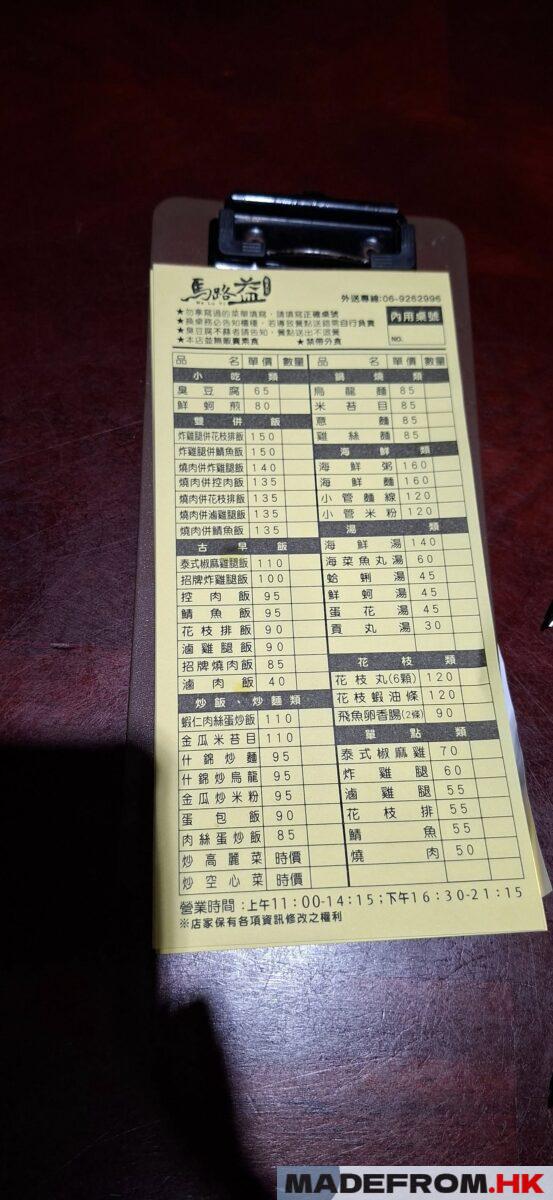 馬路益
Ma Lu Yi
外送專線:06-9262996
★勿拿寫過的菜單填寫，請填寫正確桌號
★換桌務必告知櫃檯，若導致餐點送錯需自行負責
★臭豆腐不辣者請告知，餐點送出不退餐
★本店並無販賣素食 ★禁帶外食
內用桌號
NO.
品名 單價 數量
小吃類
臭豆腐 65
鮮蚵煎 80
雙併飯
炸雞腿併花枝排飯 150
炸雞腿併鯖魚飯 150
燒肉併炸雞腿飯 140
燒肉併控肉飯 135
燒肉併花枝排飯 135
燒肉併滷雞腿飯 135
燒肉併鯖魚飯 135
古早飯
泰式椒麻雞腿飯 110
招牌炸雞腿飯 100
控肉飯 95
鯖魚飯 95
花枝排飯 90
滷雞腿飯 90
招牌燒肉飯 85
滷肉飯 40
炒飯、炒麵類
蝦仁肉絲蛋炒飯 110
金瓜米苔目 110
什錦炒麵 95
什錦炒烏龍 95
金瓜炒米粉 95
蛋包飯 90
肉絲蛋炒飯 85
炒高麗菜 時價
炒空心菜 時價
品名 單價 數量
鍋燒類
烏龍麵 85
米苔目 85
意麵 85
雞絲麵 85
海鮮類
海鮮粥 160
海鮮麵 160
小管麵線 120
小管米粉 120
湯類
海鮮湯 140
海菜魚丸湯 60
蛤蜊湯 45
鮮蚵湯 45
蛋花湯 45
貢丸湯 30
花枝類
花枝丸(6顆) 120
花枝蝦油條 120
飛魚卵香腸(2條) 90
單點類
泰式椒麻雞 70
炸雞腿 60
滷雞腿 55
花枝排 55
鯖魚 55
燒肉 50
營業時間:上午11:00-14:15;下午16:30-21:15
※店家保有各項資訊修改之權利
MADEFROM.HK